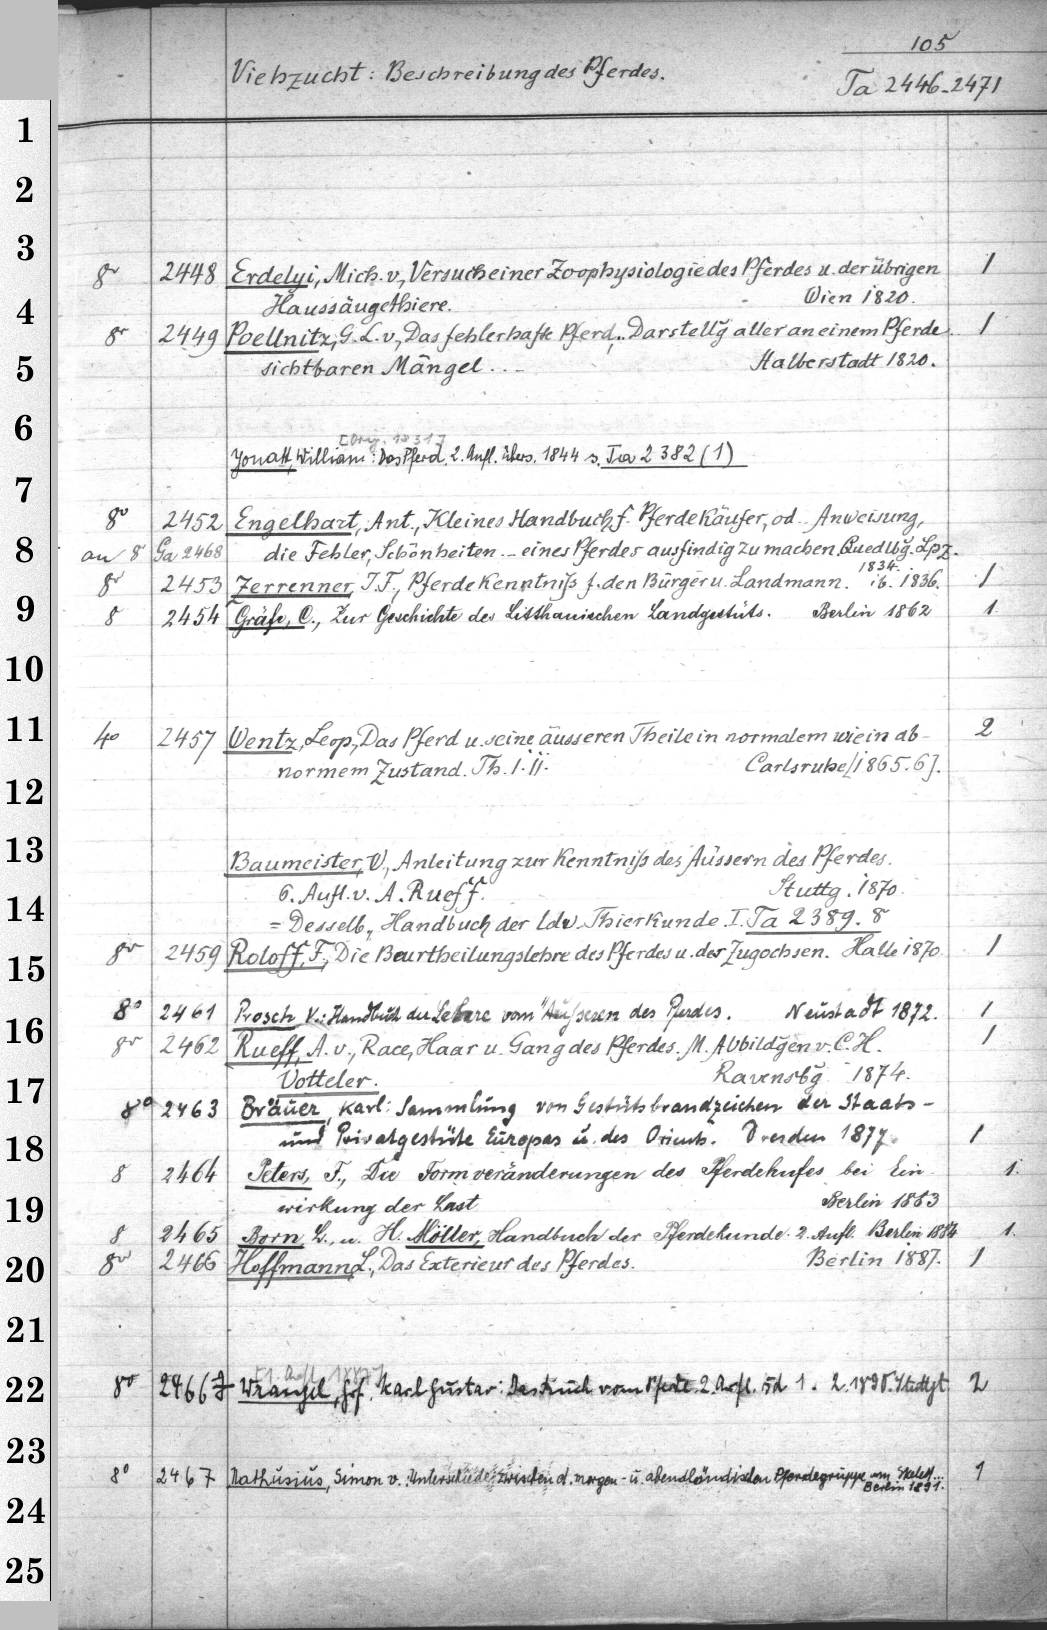 105
Viehzucht: Beschreibung des Pferdes.
Ta 2446-2471
1
2
3
8º 2448 Erdelyi, Mich. v., Versuch einer Zoophysiologie des Pferdes u. der übrigen 1
Haussäugethiere. Wien 1820.
4
8º 2449 Poellnitz, G. L. v., Das fehlerhafte Pferd, .. Darstellg aller an einem Pferde 1
sichtbaren Mängel ... Halberstadt 1820.
5
6
[Orig. 1831]
Youatt, William: Das Pferd. 2. Aufl. übers. 1844 s. Ta 2382 (1)
7
8º 2452 Engelhart, Ant., Kleines Handbuch f. Pferdekäufer, od. Anweisung,
8
an 8 Ga 2468 die Fehler, Schönheiten .. eines Pferdes ausfindig zu machen. Quedlbg. Lpz.
1834.
8º 2453 Zerrenner, J. F., Pferdekenntniß f. den Bürger u. Landmann. ib. 1836. 1
9
8 2454 Gräfe, C., Zur Geschichte des Litthauischen Landgestüts. Berlin 1862 1.
10
11
4º 2457 Wentz, Leop., Das Pferd u. seine äusseren Theile in normalem wie in ab- 2
normem Zustand. Th. I. II. Carlsruhe [1865.6].
12
13
Baumeister, W., Anleitung zur Kenntniß des Äussern des Pferdes.
6. Aufl. v. A. Rueff. Stuttg. 1870.
14
= Desselb., Handbuch der ldw. Thierkunde. I. Ta 2389. 8
15
8º 2459 Roloff, F., Die Beurtheilungslehre des Pferdes u. des Zugochsen. Halle 1870. 1
8º 2461 Prosch V.: Handbuch der Lehre vom Äußeren des Pferdes. Neustadt 1872. 1
16
8º 2462 Rueff, A. v., Race, Haar u. Gang des Pferdes. M. Abbildgen v. C. H. 1
Votteler. Ravensbg 1874.
17
8º 2463 Bräuer, Karl: Sammlung von Gestütsbrandzeichen der Staats-
und Privatgestüte Europas u. des Orients. Dresden 1877. 1
18
8 2464 Peters, F., Die Formveränderungen des Pferdehufes bei Ein- 1.
wirkung der Last Berlin 1883
19
8 2465 Born, L., u. H. Möller, Handbuch der Pferdekunde. 2. Aufl. Berlin 1884 1.
20
8º 2466 Hoffmann, L., Das Exterieur des Pferdes. Berlin 1887. 1
21
[1. Aufl. 1887]
22
8º 2466 Wrangel, Grf. Karl Gustav: Das Buch vom Pferde. 2. Aufl. Bd 1. 2. 1890. Stuttgt 2
23
8º 2467 Nathusius, Simon v.: Unterschiede zwischen d. morgen- u. abendländischen Pferdegruppe am Skelett... 1
Berlin 1891.
24
25